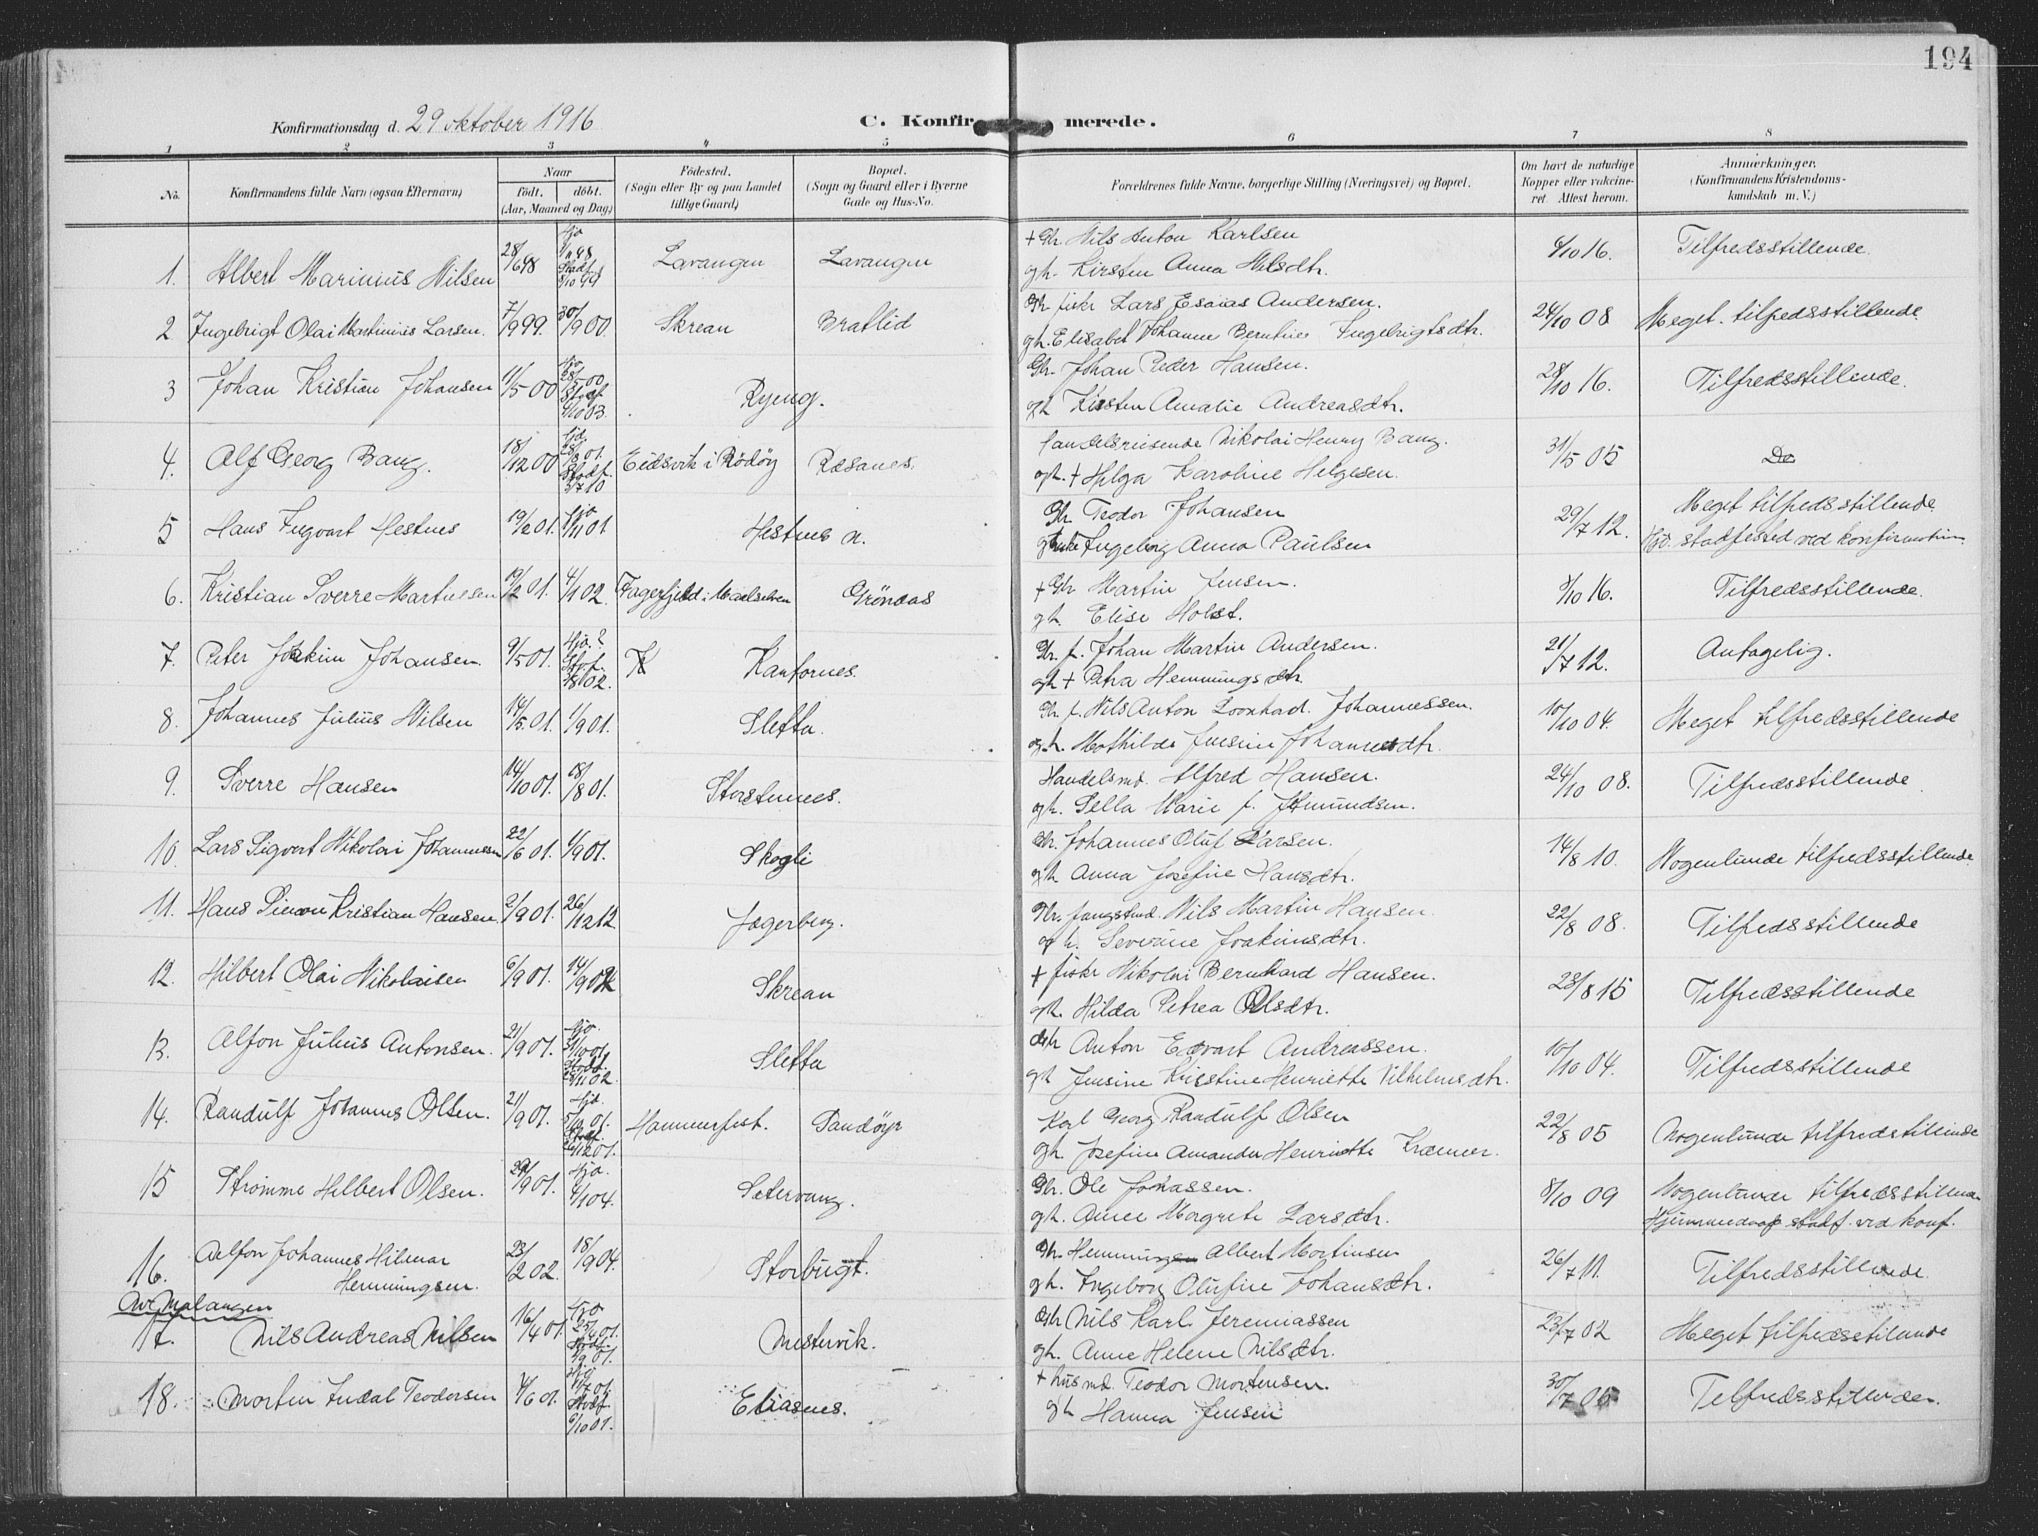 194
Konfirmationsdag d. 29 oktober 1916
C. Konfirmerede.
1 2 3 4 5 6 7 8
No.
Konfirmandens fulde Navn (ogsaa Efternavn)
Naar
födt. döbt.
(Aar, Maaned og Dag)
Födested.
(Sogn eller By og paa Landet
tillige Gaard)
Bopæl.
(Sogn og Gaard eller i Byerne
Gade og Hus-No.
Forældrenes fulde Navne, borgerlige Stilling (Næringsvei) og Bopæl.
Om havt de naturlige
Kopper eller vakcine-
ret. Attest herom.
Anmærkninger.
(Konfirmandens Kristendoms-
kundskab m. V.)
1. Albert Marinius Nilsen 28/6 98 Lavangen Lavangen
+ Gbr. Nils Anton Karlsen
gh. Kirsten Anna Nilsdtr. 16. Tilfredsstillende.
2 Ingebrigt Olai Martinius Larsen. 7/9 99. 30/9 00. Skrean Bratlid
Gbr. fisker Lars Esaias Andersen.
gh. Elisabet Johanne Berntine Ingebrigtsdtr. 24/10 08 Meget tilfredsstillende
3 Johan Kristian Johansen 11/5 00 Ryeng.
Gbr. Johan Peder Hansen.
gh. Kirsten Amalie Andreasdtr. 28/10 16. Tilfredsstillende.
4. Alf Georg Bang. 18/12 00 Eidsvik i Rödöy Ræsanes.
Handelsreisende Nikolai Henry Bang.
gh. + Helga Karoline Helgesen. 31/5 05 Do
5 Hans Ingvart Hestnes 19/2 01. Hestnes n.
Gbr Teodor Johansen
Ingeborg Anna Paulsen 29/7 12. Meget tilfredsstillende
stadfested ved konfirmation
6. Kristian Sverre Martinsen 19/2 01. 4/1 02. Fagerfjeld i Maalselven Grönaas
+ Gbr Martin Jensen.
gh. Elise Holst. 16. Tilfredsstillende.
7. Peter Joakim Johansen. 9/5 01. Kantornes.
Gbr. f. Johan Martin Andersen.
gh + Petra Hemmingsdtr 21/7 12. Antagelig.
8. Johannes Julius Nilsen 14/5 01. 1/9 01. Sletta.
Gbr. f. Nils Anton Leonhard Johannessen.
gh. Mathilde Jensine Johannesdtr. 10/10 04. Meget tilfredsstillende
9. Sverre Hansen 14/10 01. 18/8 01. Storstennes.
Handelsmd. Alfred Hansen.
gh. Sella Marie f. 24/10 08. Tilfredsstillende
10. Lars Sigvart Nikolai Johannessen 22/6 01. 1/9 01. Skogli
Gbr. Johannes Oluf Larsen.
gh Anna Josefine Hansdtr. 14/8 10. Nogenlunde tilfredsstillende
11. Hans Simon Kristian Hansen. 2/9 01. 26/12 12. Fagerberg.
Gbr. fangstmd. Nils Martin Hansen.
gh. Severine Joakimsdtr. 22/8 08. Tilfredsstillende
12. Hilbert Olai Nikolaisen 6/9 01. 14/9 02 Skrean
+ fisker Nikolai Bernhard Hansen.
gh. Hilda Petrea Olsdtr. 23/8 15 Tilfredsstillende
13. Alfon Julius Antonsen. 21/9 01. Sletta
Gbr Anton Edvart Andreassen.
gh Jensine Kristine Henriette Vilhelmsdtr. 10/10 04. Tilfredsstillende
14. Randulf Johannes Olsen. 21/9 01. Hammerfest. Sandöyr
Karl Georg Randulf Olsen
gh. Josefine Amanda Henriette Kræmer. 22/8 05 Nogenlunde tilfredstillende
15 Strömme Hilbert Olsen. 29/9 01. Setervang.
Gbr. Ole Johassen.
gh. Anne Margrete Larsdtr. 8/10 09 Nogenlunde tilfredsstillende
Hjemmedaap stadf. ved konf.
16. Aelfon Johannes Hilmar
Hemmingsen. 23/2 02. 18/9 04. Storbugt.
Gbr. Hemmingen Albert Martinsen
gh. Ingeborg Olufine Johansdtr. 26/7 11. Tilfredsstillende.
Av Malangen
17. Nils Andreas Nilsen 16/4 01. Mestervik.
Gbr Nils Karl Jeremiassen
gh. Anne Helene Nilsdtr. 23/7 02 Meget tilfredsstillende
18. Morten Indal Teodorsen 4/6 01. Eliasnes.
+ husmd. Teodor Mortensen.
gh Hanna Jensen 30/7 Tilfredsstillende.